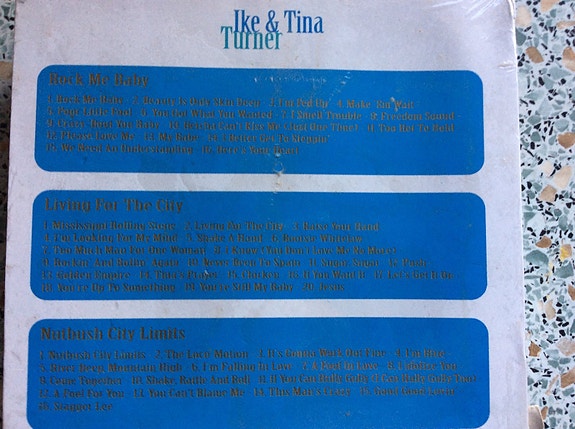 Ike & Tina
Turner
Rock Me Baby
1. Rock Me Baby 2. Beauty Is Only Skin Deep 3. I'm Fed Up 4. Make 'Em Wait
5. Poor Little Fool 6. You Got What You Wanted 7. I Smell Trouble 8. Freedom Sound
9. Crazy 'Bout You Baby 10. Betcha Can't Kiss Me (Just One Time) 11. Too Hot To Hold
12. Please Love Me 13. My Babe 14. (I Better Get To Steppin'
15. We Need An Understanding 16. Here's Your Heart
Living For The City
1. Mississippi Rolling Stone 2. Living For The City 3. Raise Your Hand
4. I'm Looking For My Mind 5. Shake A Hand 6. Bootsie Whitelaw
7. Too Much Man For One Woman 8. I Know (You Don't Love Me No More)
9. Rockin' And Rollin' Again 10. Never Been To Spain 11. Sugar Sugar 12. Push
13. Golden Empire 14. That's 15. Chicken 16. If You Want It 17. Let's Get It On
18. You're Up To Something 19. You're Still My Baby 20. Jesus
Nutbush City Limits
1. Nutbush City Limits 2. The Loco Motion 3. It's Gonna Work Out Fine 4. I'm Blue
5. River Deep Mountain High 6. I'm Falling In Love 7. A Fool In Love 8. I Idolize You
9. Come Together 10. Shake, Rattle And Roll 11. If You Can Hully Gully (I Can Hully Gully Too)
12. A Fool For You 13. You Can't Blame Me 14. This Man's Crazy 15. Somebody Lovin'
16. Stagger Lee